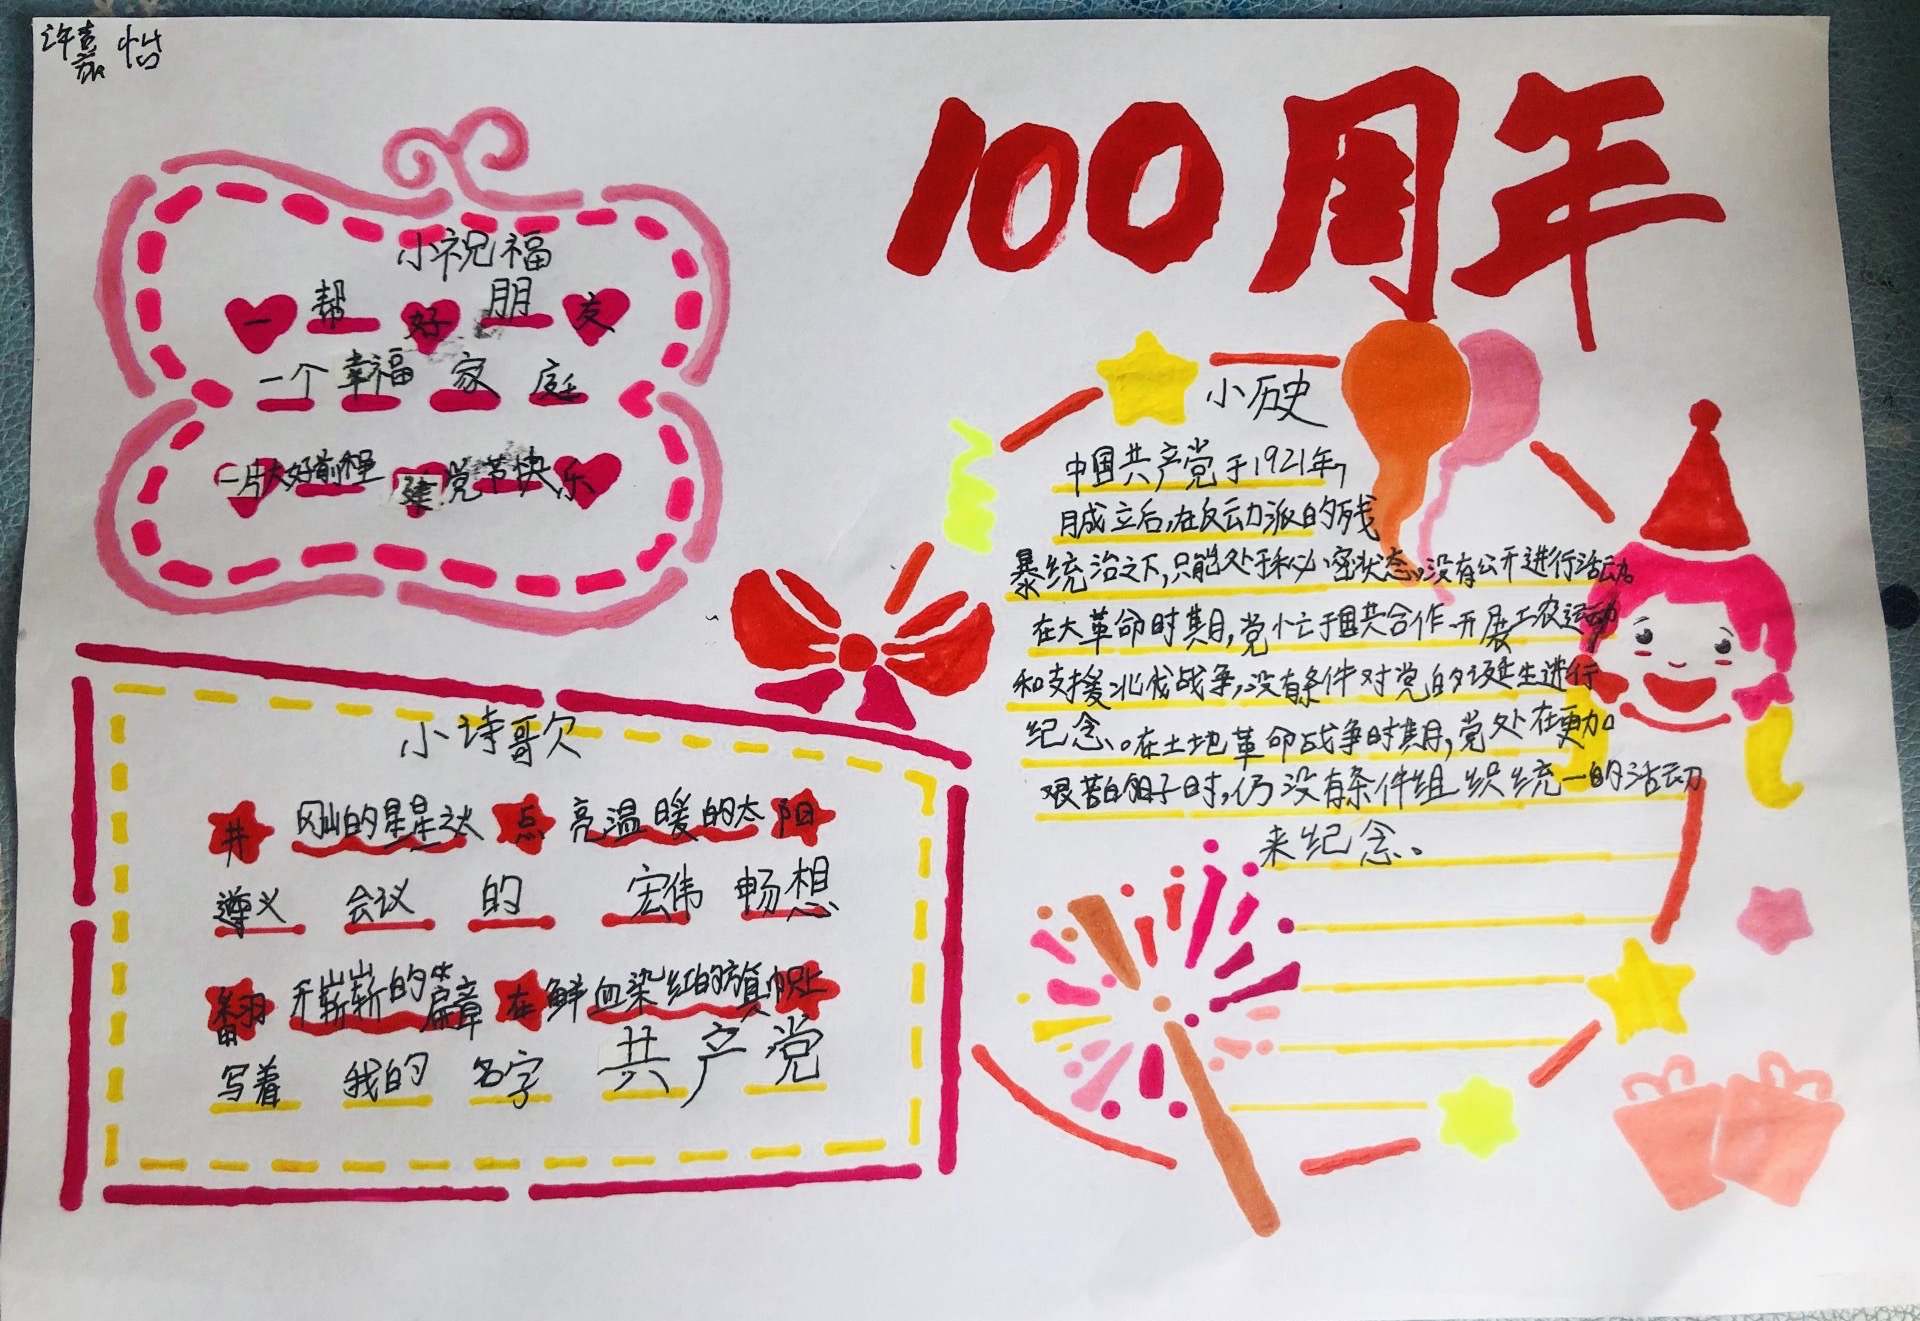 许嘉怡
100周年
小祝福
一帮好朋友
一个幸福家庭
一片大好前程 建党节快乐
小诗歌
井冈山的星星之火点亮温暖的太阳
遵义会议的宏伟畅想
翻开崭崭的篇章在鲜血染红的旗帜上
写着我的名字共产党
小历史
中国共产党于1921年7
月成立后,在反动派的残
暴统治之下,只能处于秘密状态,没有公开进行活动。
在大革命时期,党忙于国共合作、开展工农运动
和支援北伐战争,没有条件对党的诞生进行
纪念。在土地革命战争时期,党处在更加
艰苦的日子时,仍没有条件组织统一的活动
来纪念。